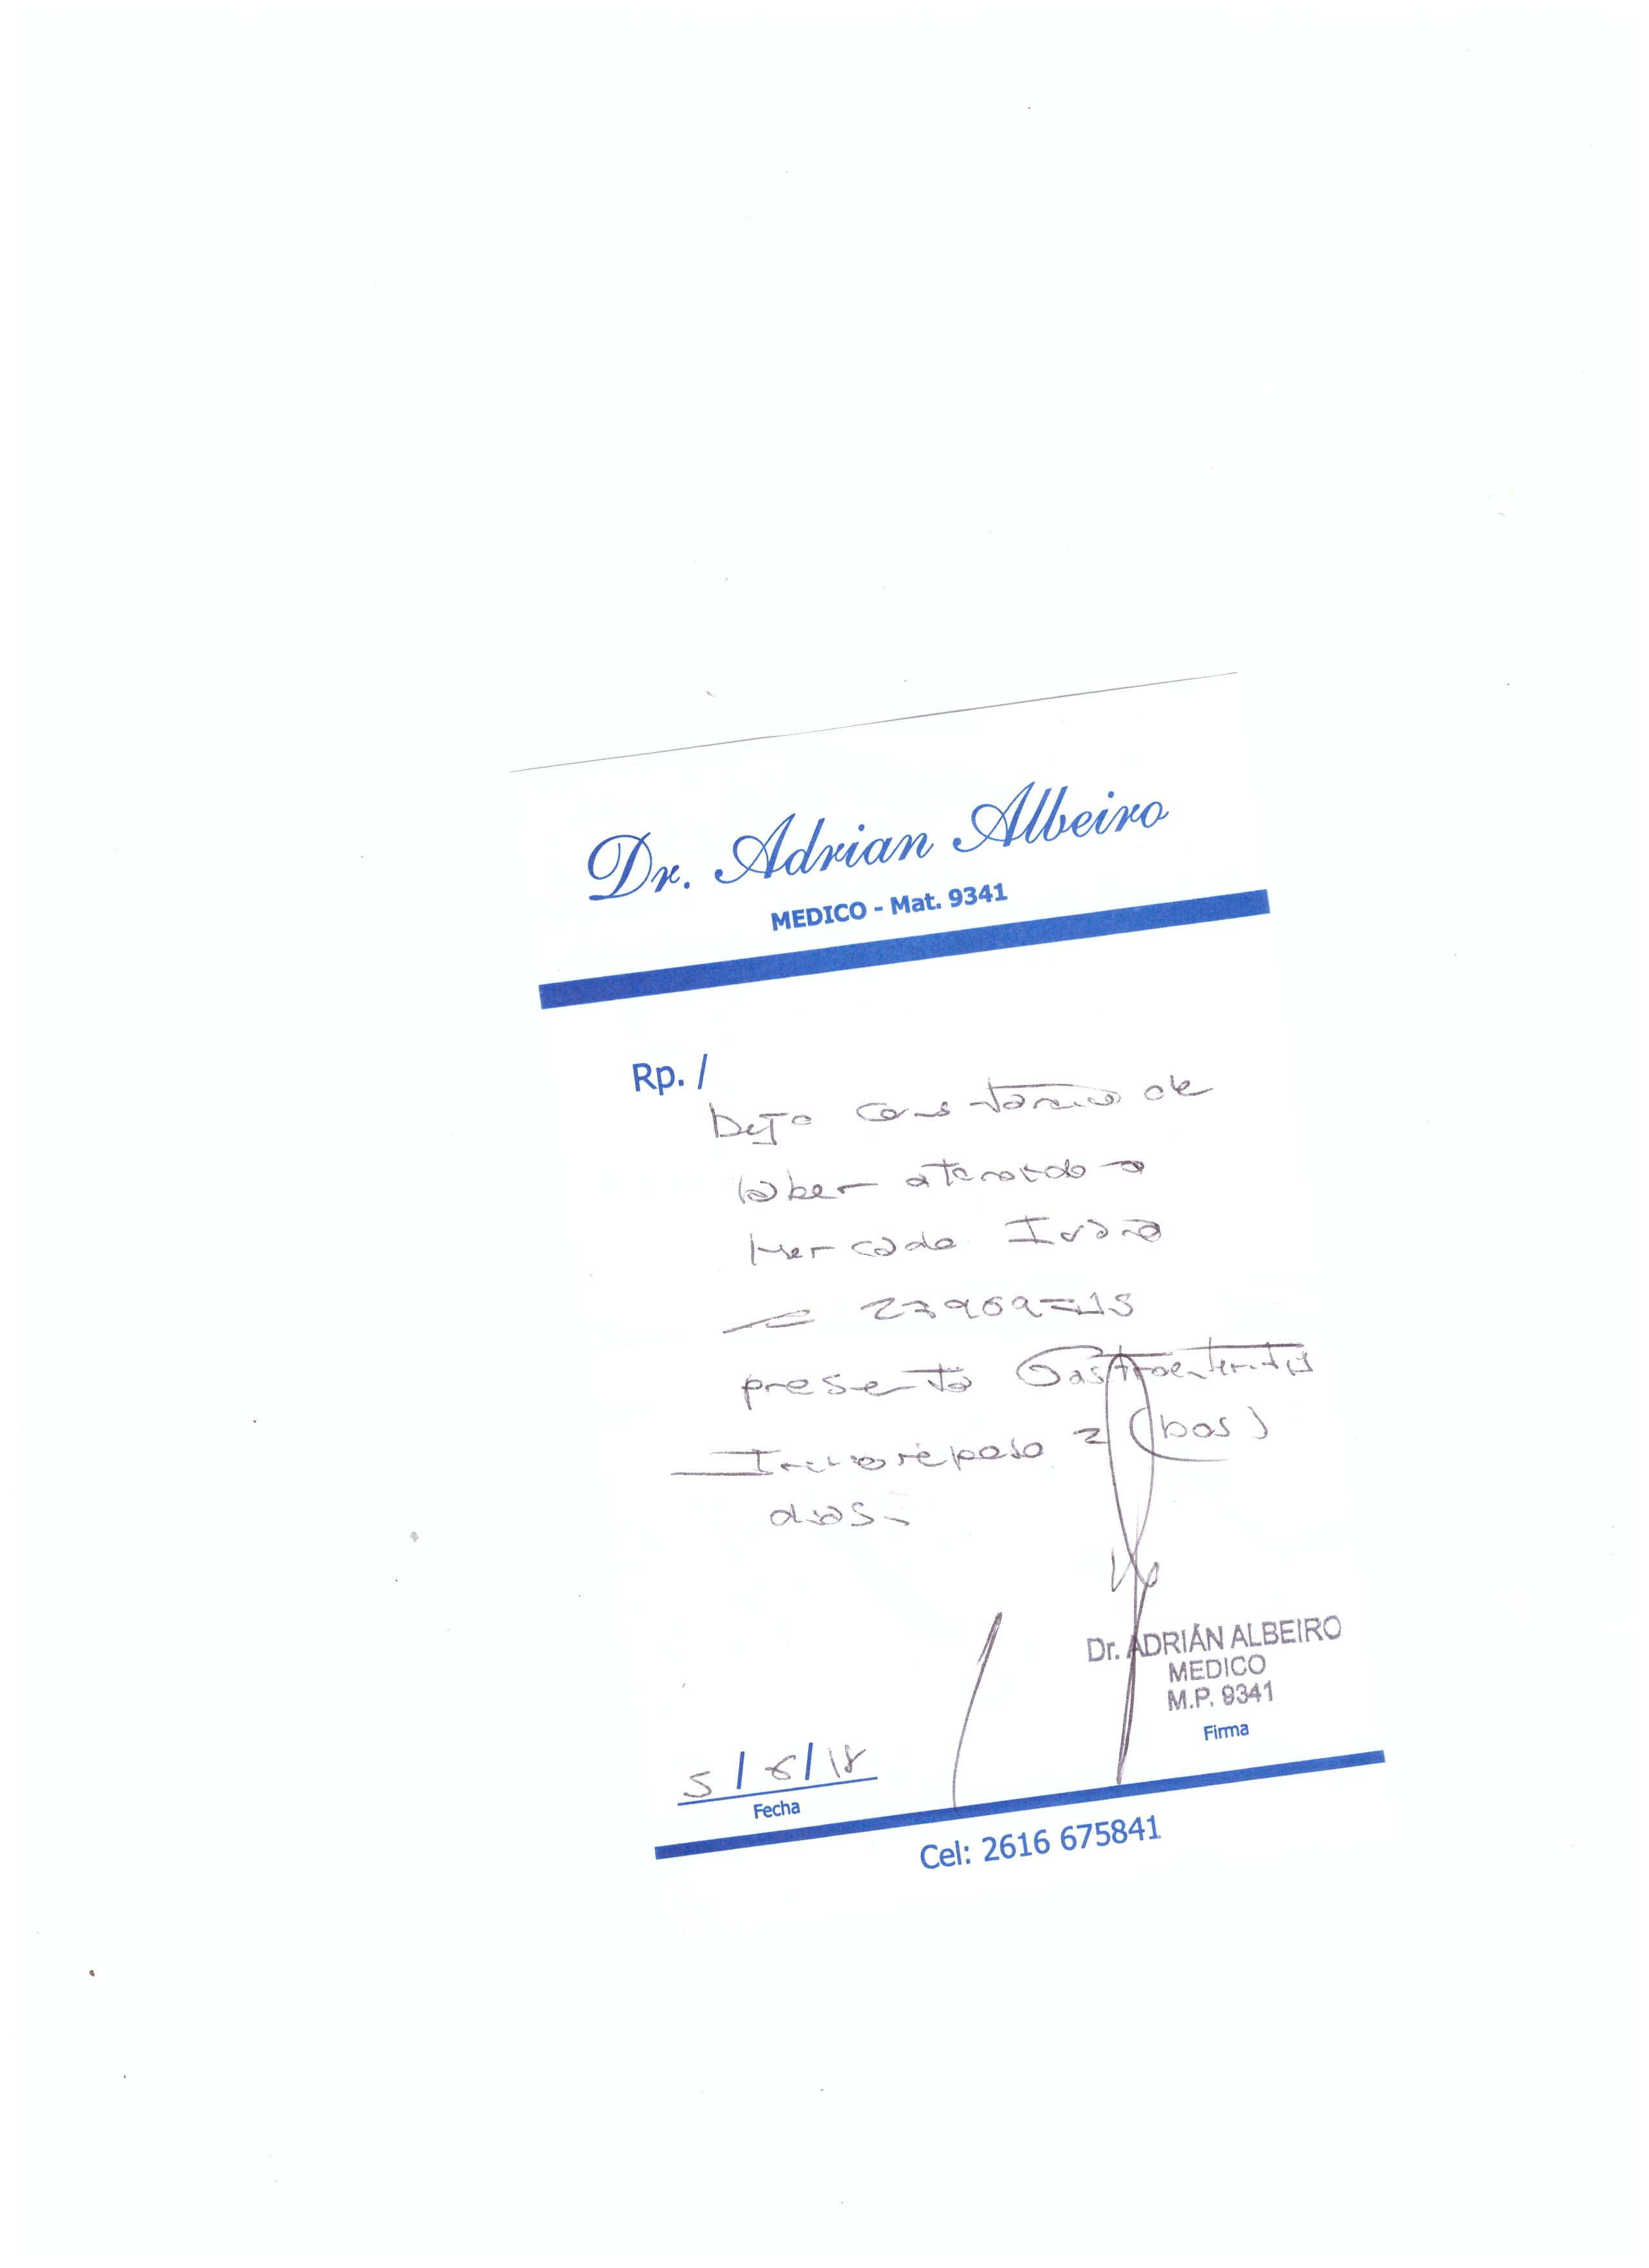 Dr. Adrian Albeiro
MEDICO - Mat. 9341
Rp. /
Dejo constancia de
haber atendido a
Mercado
presenta Gastroenteritis
Indico reposo 2 (Dos)
dias.
Dr. ADRIÁN ALBEIRO
MEDICO
M.P. 9341
Firma
5/6/18
Fecha
Cel: 2616 675841